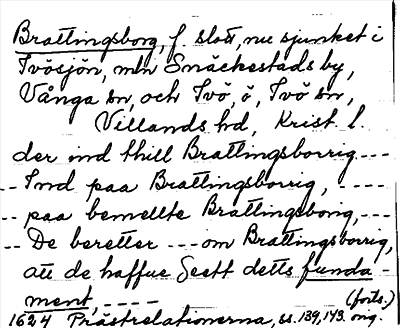 Brattingsborg, f. slott, nu sjunket i
Ivösjön, mln Snäckestads by,
Vånga sn, och Ivö, ö, Ivö sn,
Villands hd, Krist. l.
der ind thill Brattingsborrig ----
-- Ind paa Brattingsborrig, ----
-- paa bemellte Brattingsborig, ---
-- De beretter --- om Brattingsborrig,
att de haffue Seett detts funda-
ment, ---- (forts.)
1624 Prästrelationerna, ss. 139, 143. orig.